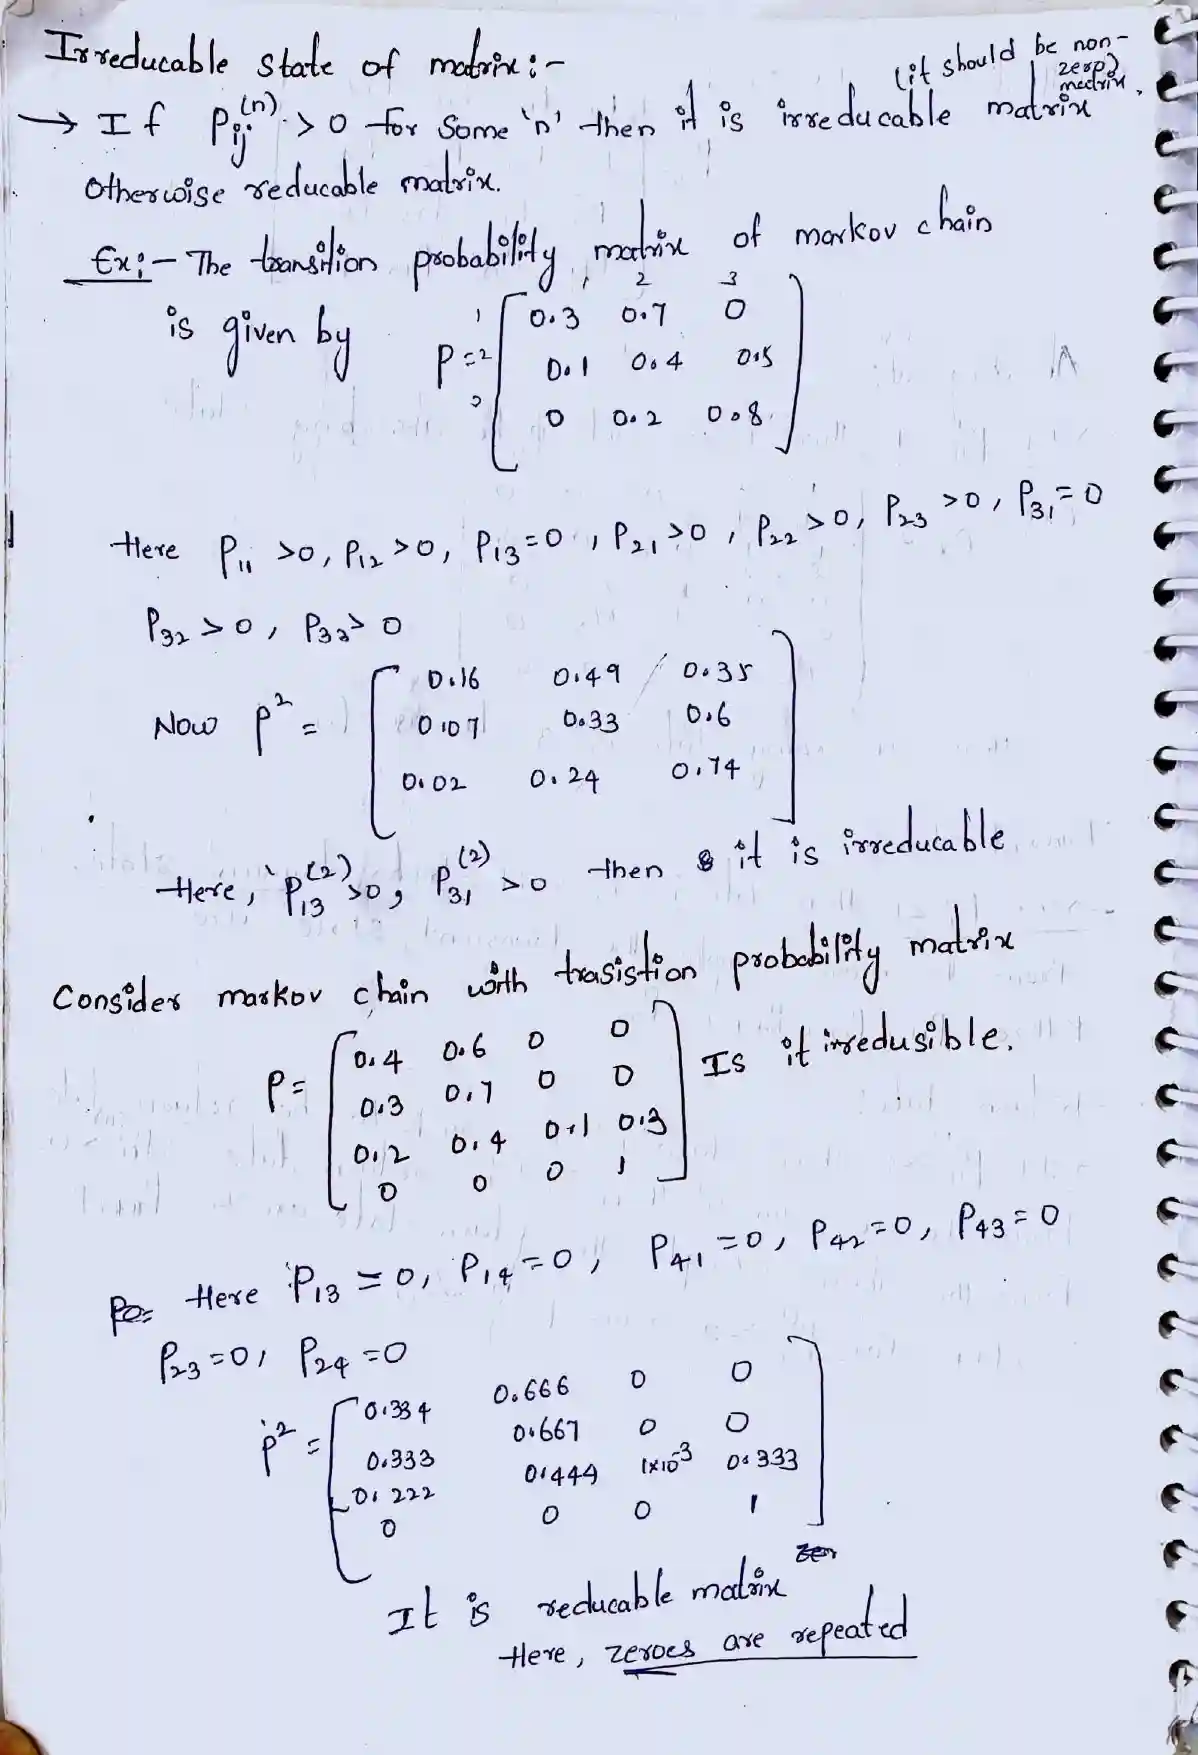 Irreducable state of matrix :-
(it should be non-
zero)
matrix.
→ If Pij(n) > 0 for some 'n' then it is irreducable matrix
Otherwise reducable matrix.
Ex:- The transition probability matrix of markov chain
2 3
is given by P = 1 [ 0.3 0.7 0
2 0.1 0.4 0.5
0 0.2 0.8 ]
Here P11 >0, P12 >0, P13 =0, P21 >0, P22 >0, P23 >0, P31 =0
P32 >0, P33 >0
Now P2 = [ 0.16 0.49 0.35
0.07 0.33 0.6
0.02 0.24 0.74 ]
Here, P13(2) >0, P31(2) >0 then it is irreducable
Consider markov chain with trasistion probability matrix
P = [ 0.4 0.6 0 0
0.3 0.7 0 0
0.2 0.4 0.1 0.3
0 0 0 1 ] Is it irredusible.
Here P13 = 0, P14 = 0, P41 = 0, P42 = 0, P43 = 0
P23 = 0, P24 = 0
P2 = [ 0.334 0.666 0 0
0.333 0.667 0 0
0.222 0.444 1x10-3 0.333
0 0 0 1 ]
It is reducable matrix
Here, zeroes are repeated